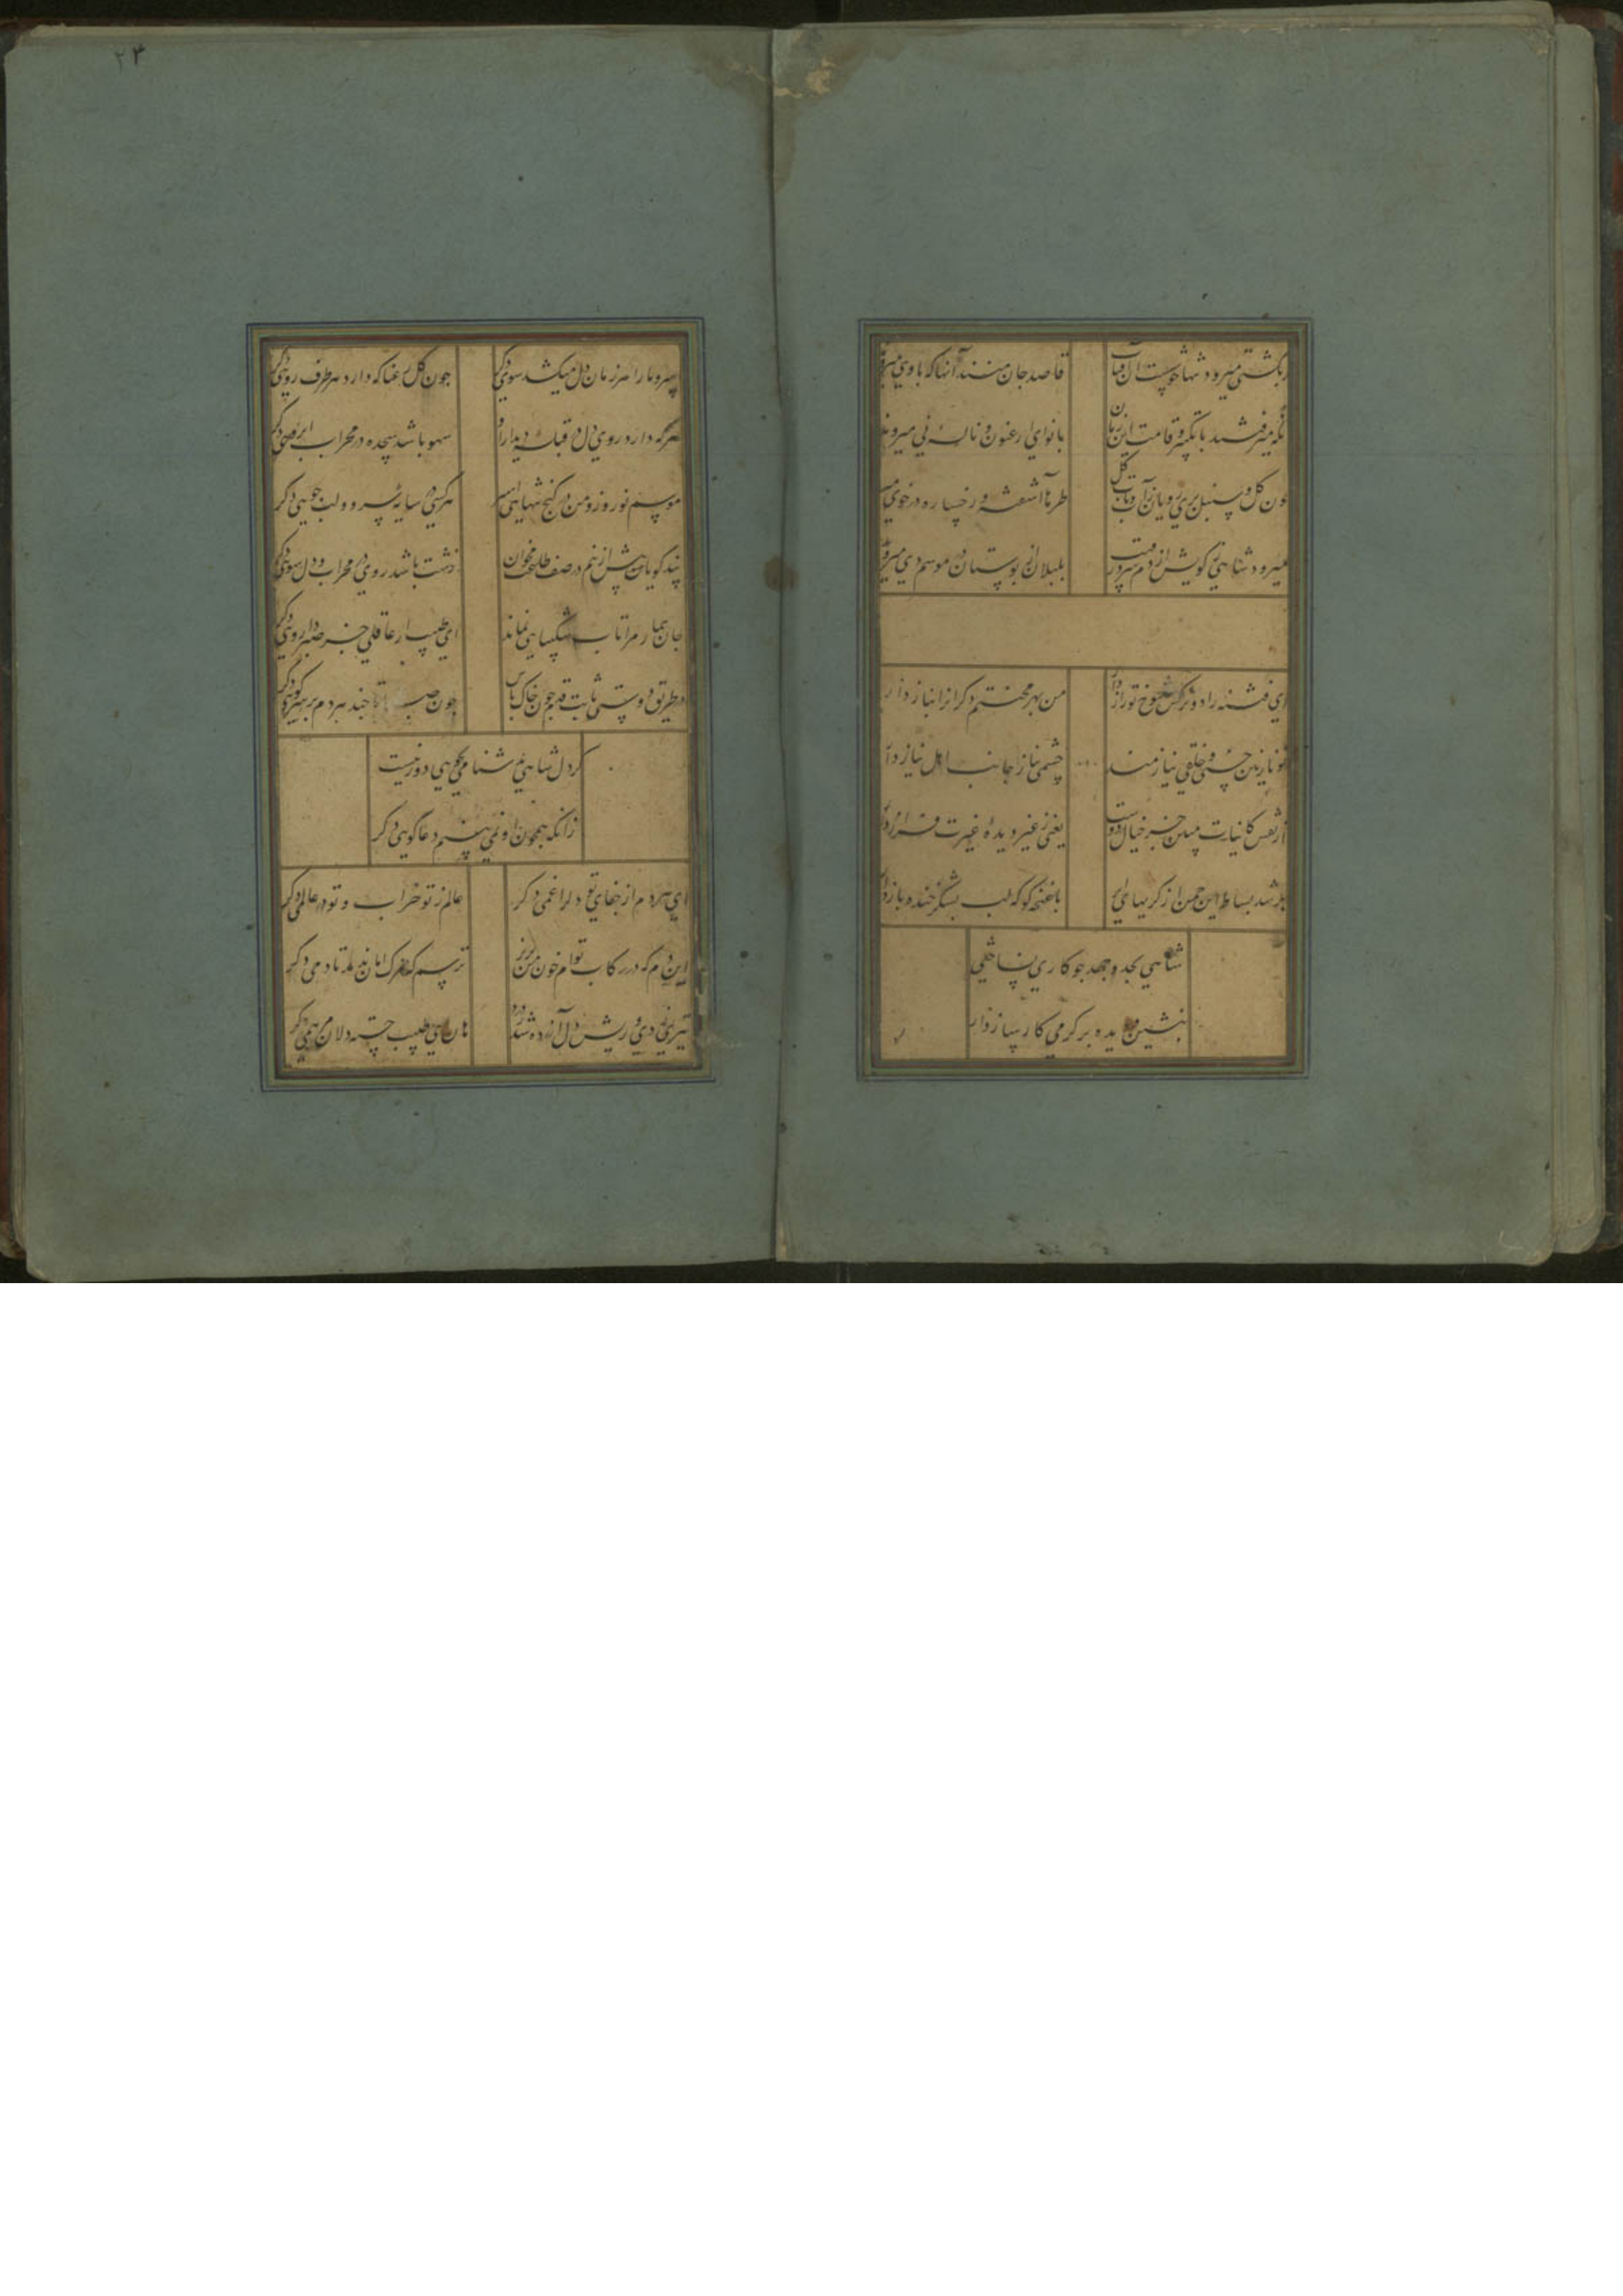 گر بگشتی میرود تنها خوشست آن آفتاب
قاصد جان منند آنها که با وی میروند
بانوای ارغنون و ناله نی میروند
چون گل و سنبل پری رویان زآب و تاب
طرها آشفته و رخساره در خوی میروند
میرود شاهی ز کویش از دم سرد رقیب
بلبلان از بوستان در موسم دی میروند
ای فتنه را دو نرگس شوخ تو رازدار
من بهر محنتم دگرانرا نیاز دار
تو نازنین حسنی و خلقی نیازمند
چشمی بناز جانب اهل نیاز دار
از نقش کاینات مبین جز خیال دوست
یعنی ز غیر دیده غیرت فراز دار
پر شد بساط این چمن از گریهای ابر
با غنچه گو که لب بشکرخنده باز دار
شاهی بجد و جهد چو کاری نساختی
بنشین و دیده بر کرم کارساز دار
۲۴
سرو ما را هر زمان دل میکشد سوی دگر
چون گل رعنا که دارد هر طرف روی دگر
هرکه دارد روی دل در قبله دیدار او
سهو باشد سجده در محراب ابروی دگر
موسم نوروز و من در کنج تنهایی اسیر
هرکسی در سایه سرو و لب جویی دگر
پند گویان بیش ازینم در صف طاعت مخوان
زشت باشد روی در محراب و دل سوی دگر
جان بیمار مرا تاب شکیبایی نماند
ای طبیب ار عاقلی جز صبر داروی دگر
در طریق دوستی ثابت قدم چون خاک باش
چون صبا تا چند هر دم بر سر کوی دگر
گر دل شاهی شناسی محرمی دور نیست
زانکه همچون او نمی بینم دعاگویی دگر
ای هر دم از جفای تو دلرا غمی دگر
عالم ز تو خراب و تو در عالمی دگر
این دم که در رکاب توام خون من بریز
ترسم که مرگ امان ندهد تا دمی دگر
تیری زدی و ریش دل آزرده شد ز درد
هان ای طبیب خسته دلان مرهمی دگر